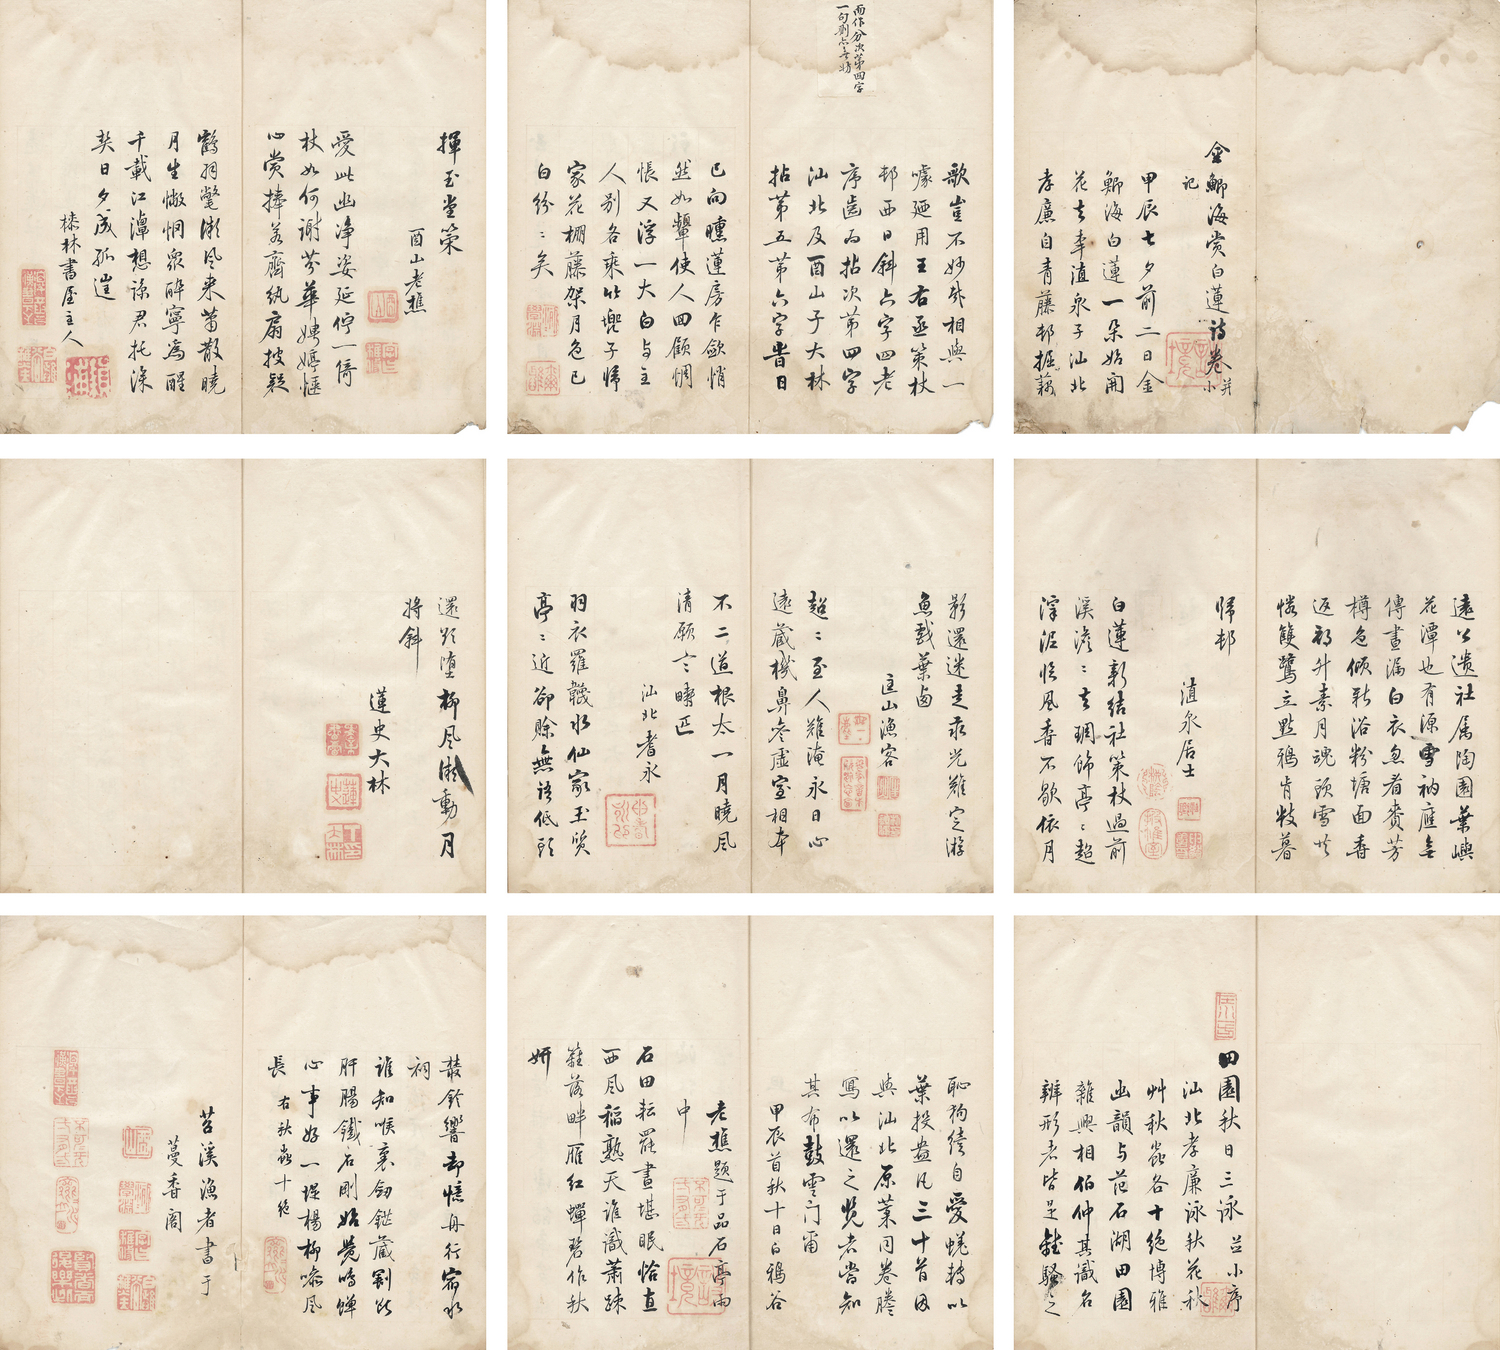 金鯽海賞白蓮詩卷 并小
記
甲辰七夕前二日金
鯽海白蓮一朵始開
花主李滇泉子汕北
孝廉自青藤邨掘藕
而作分次第四字
歌豈不妙哉相與一
噱廼用王右丞策杖
邨西日斜六字四老
序齒而拈次第四字
汕北及酉山子大林
拈第五第六字昔日
已向曛蓮房乍斂悄
然如顰使人四顧惆
悵又浮一大白与主
人別各乘竹兜子歸
家花棚藤架月色已
白紛〻矣
揮玉堂策
酉山老樵
愛此幽淨姿延佇一倚
杖如何謝芬華娉婷愜
心賞捧若齊紈扇披疑
鶴羽氅微風來芳散曉
月生慘惘眾醉寧為醒
千載江潭想諒君托深
契日夕成孤往
櫟林書屋主人
遠公遺社属陶園葉嶼
花潭也有源雪衲應無
傳畫漏白衣忽看賚芳
樽色傾新浴粉塘面香
返初升素月魂頭雪共
憐雙鷺立點鴉肯教暮
歸邨
滇泉居士
白蓮新結社策杖過前
溪澹〻玄琱飾亭〻超
滓泥臨風香不歇依月
影還迷走汞光難定游
魚戲葉西
匡山漁客
超〻至人難淹永日心
遠蔵機鼻參虛室相本
不二道根太一月曉風
清願言疇匹
汕北耆永
羽衣羅韤水仙家玉質
亭〻近卻賒無語低頭
還欲墮柳風微動月
將斜
蓮史大林
田園秋日三詠 並小序
汕北孝廉詠秋花秋
艸秋蟲各十絕博雅
幽韻与范石湖田園
雜興相伯仲其識名
辨形者皆是離騷之
恥狗續自愛蜣轉以
葉投盎凡三十首因
與汕北原葉同卷謄
寫以還之覽者當知
其布鼓雲門爾
甲辰首秋十日白鴉谷
老樵題于品石亭雨
中
石田耘罷晝堪眠恰直
西風稻熟天誰識蕭踈
籬落畔雁紅蟬碧作秋
妍
叢鈴響却憶舟行翁水
祠
誰知喉裏劒鋩蔵劉毅
肝腸鐵石剛始覺鳴蟬
心事好一堤楊柳喚風
長 右秋蟲十絕
苕溪漁者書于
蔓香閣